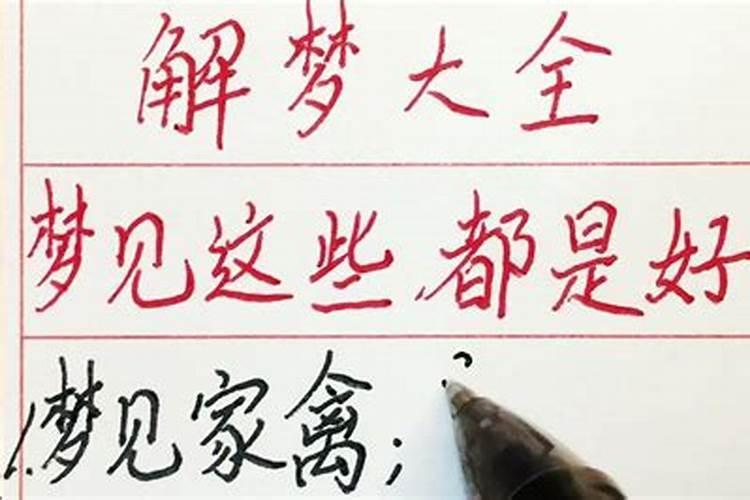 解梦大全
梦见这些都是好
1.梦见家禽;